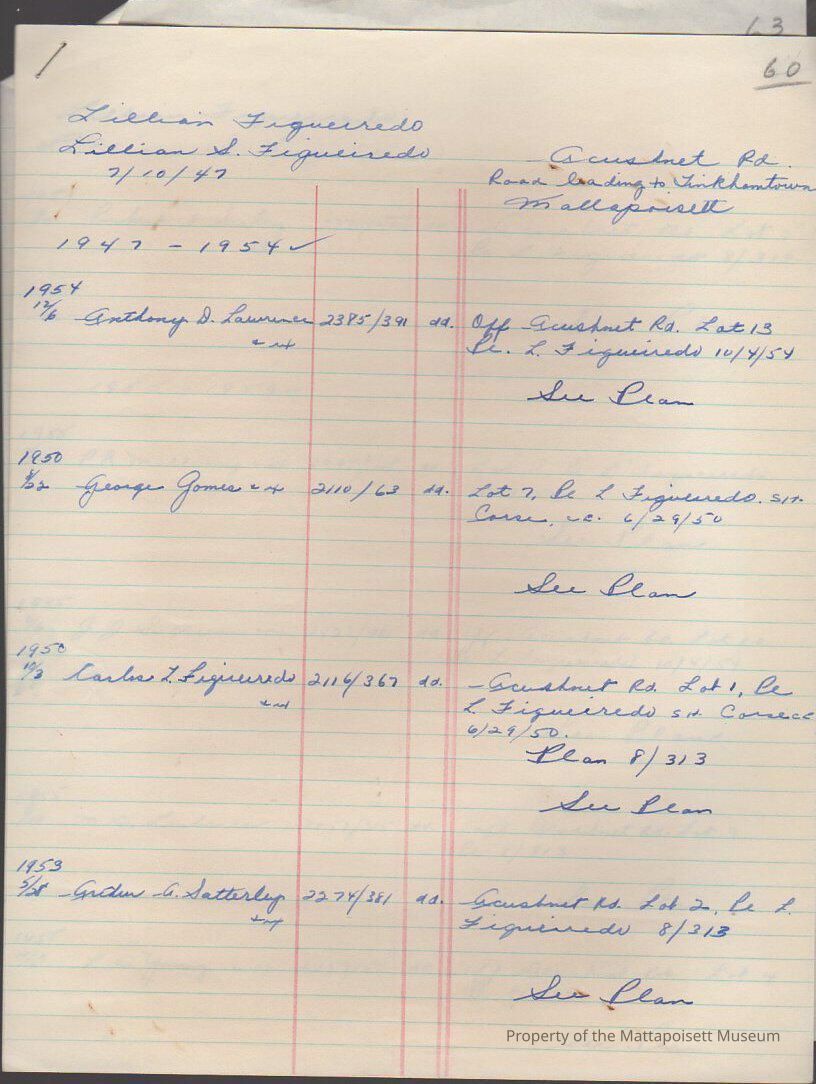 63
60
Lillian Figueiredo
Lillian S. Figueiredo
7/10/47
Acushnet Rd.
Road leading to Tinkhamtown
Mattapoisett
1947 - 1954 ✓
1954
12/6 Anthony D. Lawrence 2385/391 dd. Off Acushnet Rd. Lot 13
Pl. L. Figueiredo 10/4/54
See Plan
1950
George Gomes 2110/63 dd. Lot 7, Pl L Figueiredo.
Corse, 6/29/50
See Plan
1950
10/3 Carlos L. Figueiredo 2116/367 dd. Acushnet Rd. Lot 1, Pl
L. Figueiredo
6/29/50.
Plan 8/313
See Plan
1953
5/28 A. Satterley 2274/381 dd. Acushnet Rd. Lot 2, Pl L.
Figueiredo 8/313
See Plan
Property of the Mattapoisett Museum